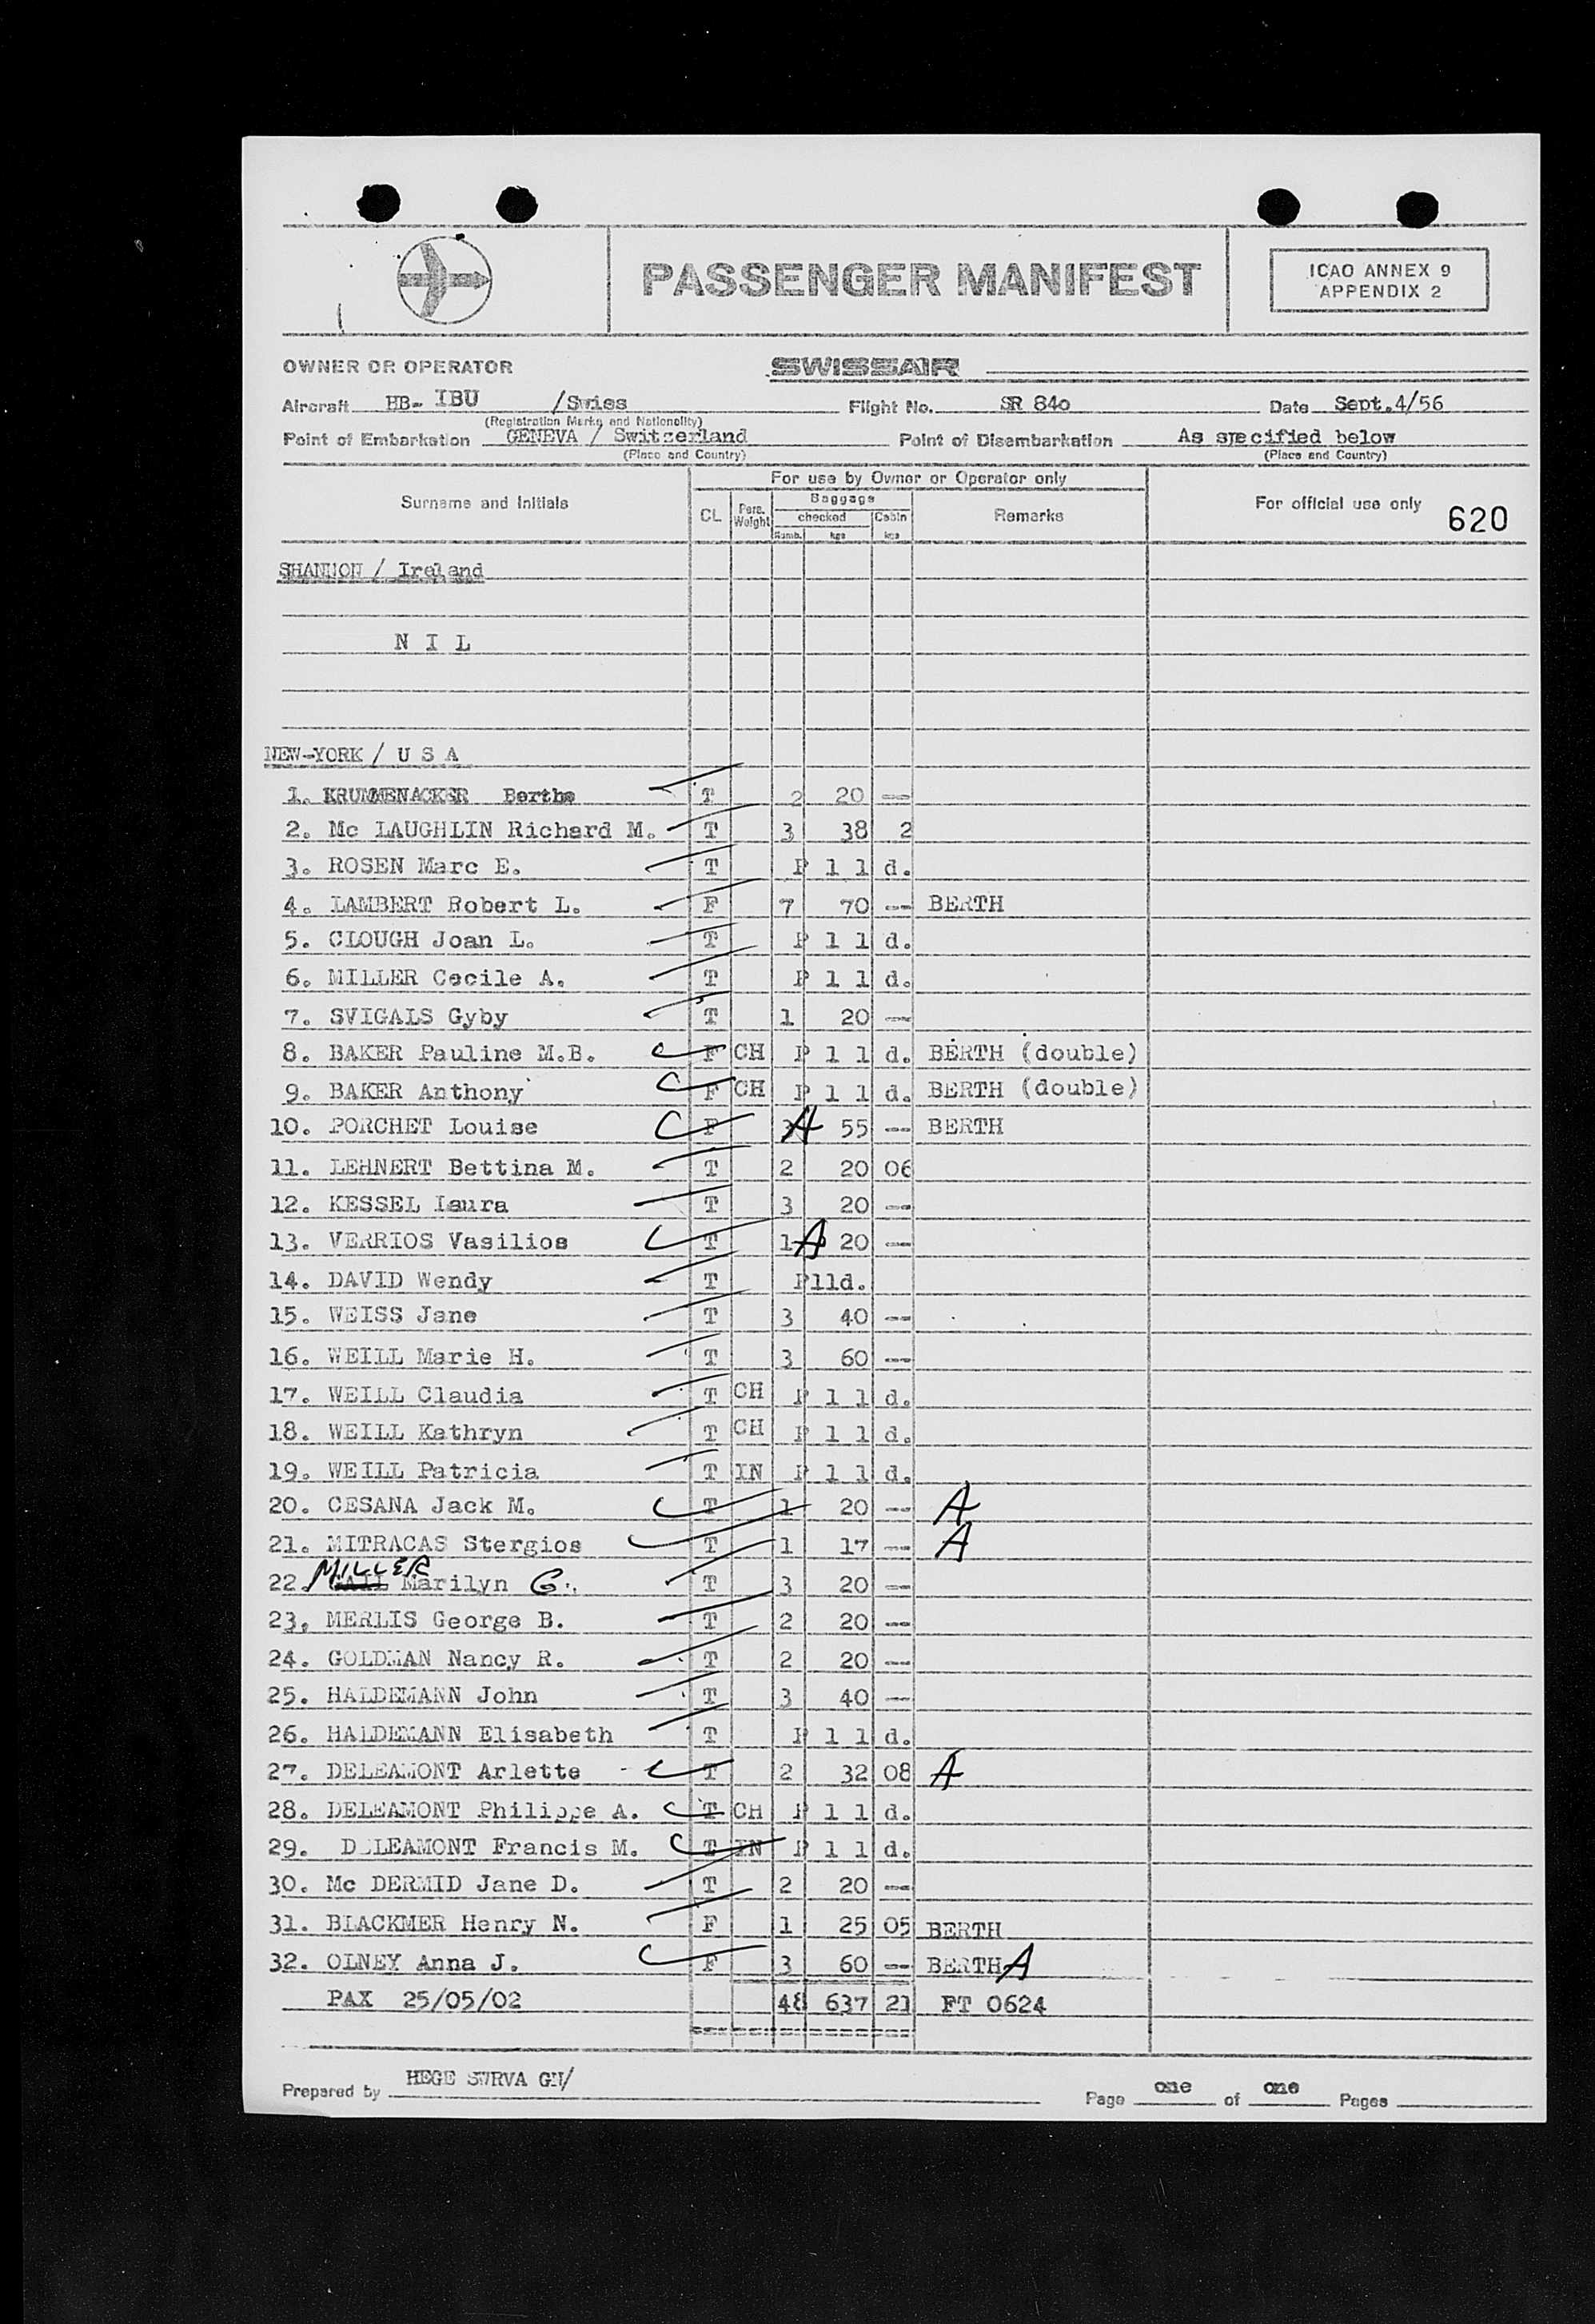 PASSENGER MANIFEST
ICAO ANNEX 9
APPENDIX 2
OWNER OR OPERATOR SWISSAIR
Aircraft HB- IBU /Swiss Flight No. SR 840 Date Sept.4/56
(Registration Marks and Nationality)
Point of Embarkation GENEVA / Switzerland Point of Disembarkation As specified below
(Place and Country) (Place and Country)
For use by Owner or Operator only
Surname and Initials CL Pers. Weight Baggage checked Numb. kgs Cabin kgs Remarks For official use only 620
SHANNON / Ireland
N I L
NEW-YORK / U S A
1. KRUMMENACKER Berthe T 2 20 --
2. Mc LAUGHLIN Richard M. T 3 38 2
3. ROSEN Marc E. T P l l d.
4. LAMBERT Robert L. F 7 70 -- BERTH
5. CLOUGH Joan L. T P l l d.
6. MILLER Cecile A. T P l l d.
7. SVIGALS Gyby T 1 20 --
8. BAKER Pauline M.B. F CH P l l d. BERTH (double)
9. BAKER Anthony F CH P l l d. BERTH (double)
10. PORCHET Louise F 3 A 55 -- BERTH
11. LEHNERT Bettina M. T 2 20 06
12. KESSEL Laura T 3 20 --
13. VERRIOS Vasilios T 1 A 20 --
14. DAVID Wendy T Plld.
15. WEISS Jane T 3 40 --
16. WEILL Marie H. T 3 60 --
17. WEILL Claudia T CH P l l d.
18. WEILL Kathryn T CH P l l d.
19. WEILL Patricia T IN P l l d.
20. CESANA Jack M. T 1 20 -- A
21. MITRACAS Stergios T 1 17 -- A
22. MILLER Marilyn G. T 3 20 --
23. MERLIS George B. T 2 20 --
24. GOLDMAN Nancy R. T 2 20 --
25. HALDEMANN John T 3 40 --
26. HALDEMANN Elisabeth T P l l d.
27. DELEAMONT Arlette T 2 32 08 A
28. DELEAMONT Philippe A. T CH P l l d.
29. DELEAMONT Francis M. T IN P l l d.
30. Mc DERMID Jane D. T 2 20 --
31. BLACKMER Henry N. F 1 25 05 BERTH
32. OLNEY Anna J. F 3 60 -- BERTH A
PAX 25/05/02 48 637 21 FT 0624
Prepared by HEGE SWRVA GN/
Page one of one Pages